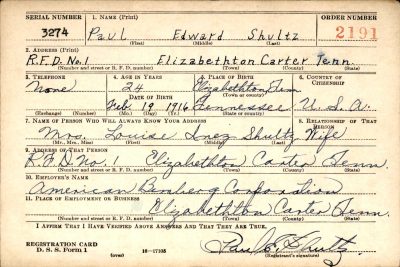 SERIAL NUMBER 1. NAME (Print) ORDER NUMBER
3274 Paul Edward Shultz 2191
(First) (Middle) (Last)
2. ADDRESS (Print)
R.F.D. No. 1 Elizabethton Carter Tenn.
(Number and street or R. F. D. number) (Town) (County) (State)
3. TELEPHONE 4. AGE IN YEARS 5. PLACE OF BIRTH 6. COUNTRY OF CITIZENSHIP
None 24 Elizabethton Tenn
DATE OF BIRTH (Town or county)
Feb 19 1916 Tennessee U.S.A.
(Exchange) (Number) (Mo.) (Day) (Yr.) (State or country)
7. NAME OF PERSON WHO WILL ALWAYS KNOW YOUR ADDRESS 8. RELATIONSHIP OF THAT PERSON
Mrs. Louise Inez Shultz Wife
(Mr., Mrs., Miss) (First) (Middle) (Last)
9. ADDRESS OF THAT PERSON
R.F.D. No. 1 Elizabethton Carter Tenn.
(Number and street or R. F. D. number) (Town) (County) (State)
10. EMPLOYER'S NAME
American Bemberg Corporation
11. PLACE OF EMPLOYMENT OR BUSINESS
Elizabethton Carter Tenn.
(Number and street or R. F. D. number) (Town) (County) (State)
I AFFIRM THAT I HAVE VERIFIED ABOVE ANSWERS AND THAT THEY ARE TRUE.
Paul E. Shultz
REGISTRATION CARD
D. S. S. Form 1 (over) 16—17105 (Registrant's signature)